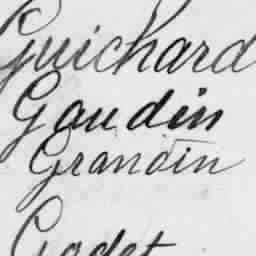 Guichard
Gaudin
Grandin
Godet